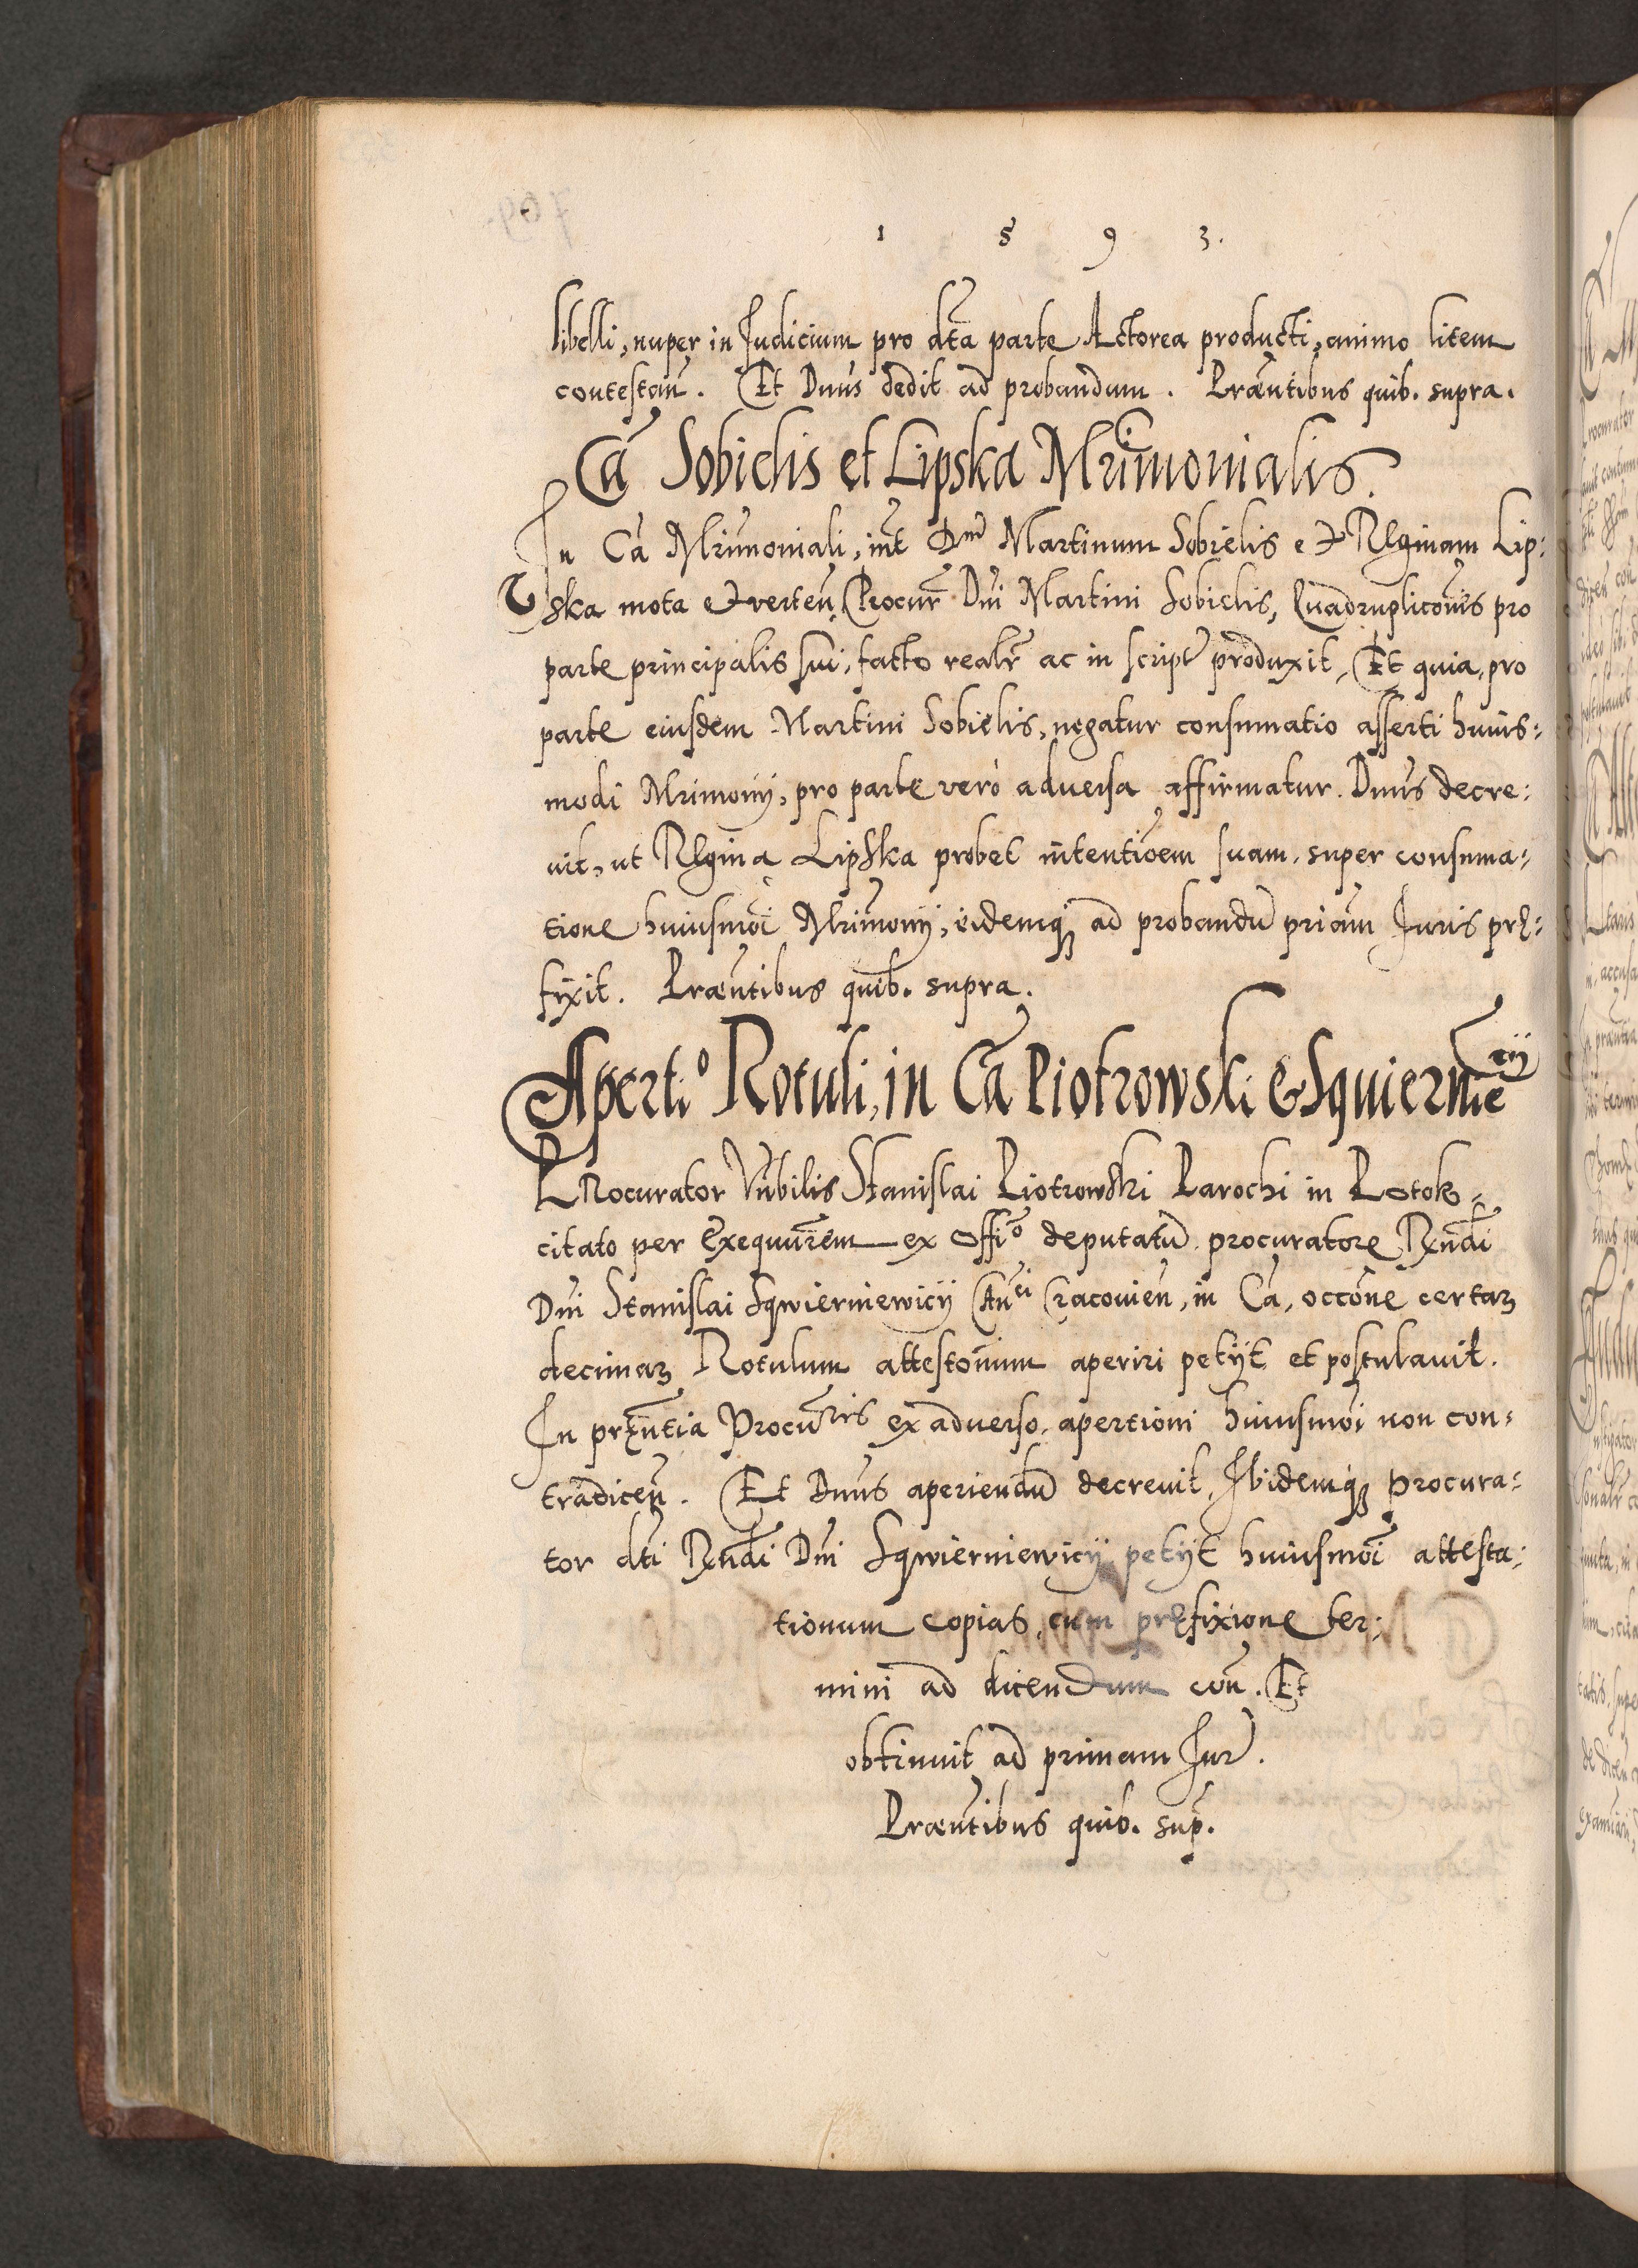 1 5 9 3.
libelli, nuper in Judicium pro dta parte Actorea producti, animo litem
contestań. Et Dnus dedit ad probandum. Praeńtibus quib. supra.
Cā Sobielis et Lipska Mrimonialis.
In Cā Mrimoniali, int Dnū Martinum Sobielis et Reginam Lip:
ska mota et verteń, Procur Dni Martini Sobielis, Quadruplicōnis pro
parte principalis sui, facto realr ac in script produxit, Et quia, pro
parte eiusdem Martini Sobielis, negatur consumatio asserti huius:
modi Mrimonij, pro parte verò adversa affirmatur. Dnus decre:
vit, ut Regina Lipska probet intentiōem suam, super consuma:
tione huiusmōi Mrimonij, eidemq; ad probandū primam Juris prę:
fixit. Praeńtibus quib. supra.
Aperti° Rotuli, in Cā Piotrowski & Squierniecij
Procurator Vnbilis Stanislai Piotrowski Parochi in Potok,
citato per Exequutrēm ex Offi° deputatū procuratore Rndi
Dni Stanislai Sqwierniewicij Can^ci Cracovień, in Cā, occōne certaɜ
decimaɜ Rotulum attestōnum aperiri petijt et postulavit.
In pręntia Procuris ex adverso, apertioni huiusmōi non con:
tradiceń. Et Dnus aperiendū decrevit, Ibidemq; Procura:
tor dti Rndi Dni Sqwierniewicij petijt huiusmōi attesta:
tionum copias, cum pręfixione ter:
mini ad dicendum coń. Et
obtinuit ad primam Jur.
Praeńtibus quib. sup.